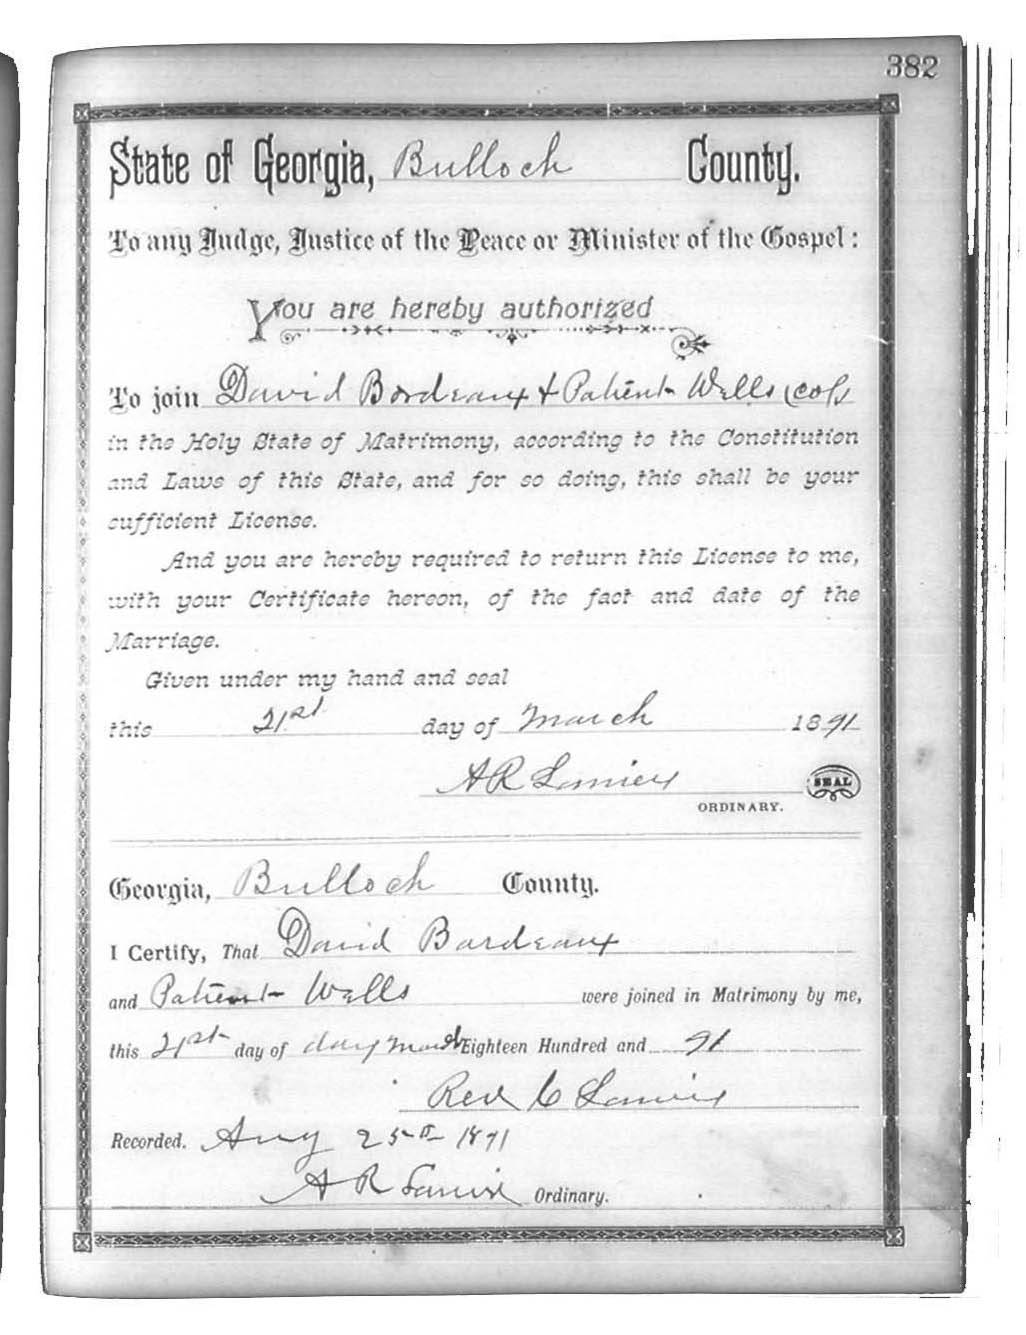 382
State of Georgia, Bulloch County.
To any Judge, Justice of the Peace or Minister of the Gospel:
You are hereby authorized
To join David Bordeaux & Patient Wells (col)
in the Holy State of Matrimony, according to the Constitution
and Laws of this State, and for so doing, this shall be your
sufficient License.
And you are hereby required to return this License to me,
with your Certificate hereon, of the fact and date of the
Marriage.
Given under my hand and seal
this 21st day of March 1891
A R Lanier SEAL
ORDINARY.
Georgia, Bulloch County.
I Certify, That David Bordeaux
and Patient Wells were joined in Matrimony by me,
this 21st day of day March Eighteen Hundred and 91
Rev C Lanier
Recorded. Aug 25th 1891
A R Lanier Ordinary.